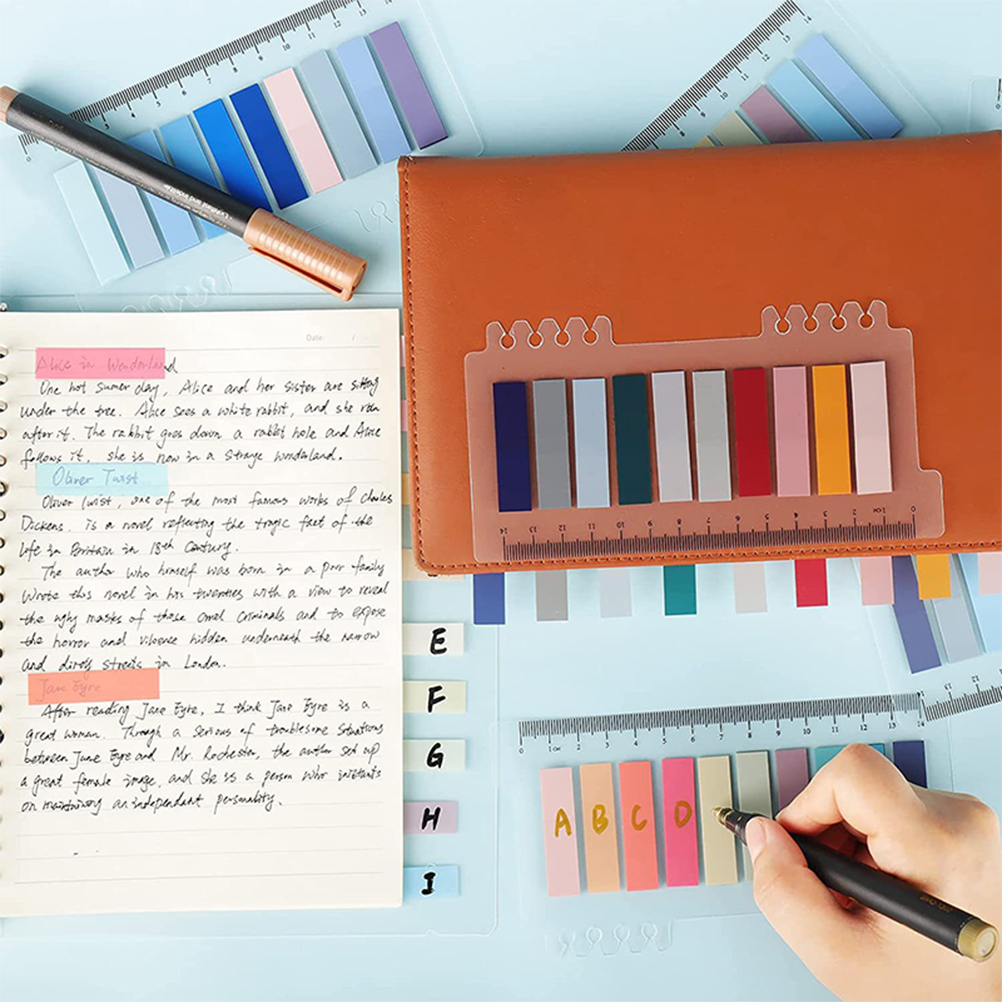 Date: /
Alice in Wonderland
One hot sumer day, Alice and her sister are sitting
under the tree. Alice sees a white rabbit, and she ran
after it. The rabbit goes down a rabbit hole and Alice
follows it, she is now in a strange wonderland.
Oliver Twist
Oliver Twist, one of the most famous works of Charles
Dickens. is a novel reflecting the tragic fact of the
life in Britain in 18th Century.
The author who himself was born in a poor family
wrote this novel in his twenties with a view to reveal
the ugly masks of those cruel criminals and to expose
the horror and violence hidden underneath the narrow
and dirty streets in London.
Jane Eyre
After reading Jane Eyre, I think Jane Eyre is a
great woman. Through a serious of troublesome situations
between Jane Eyre and Mr. Rochester, the author set up
a great female image, and she is a person who insistants
on maintaining an independent personality.
E
F
G
H
I
14 13 12 11 10 9 8 7 6 5 4 3 2 1cm 0
0 1cm 2 3 4 5 6 7 8 9 10 11 12 13 14
A B C D